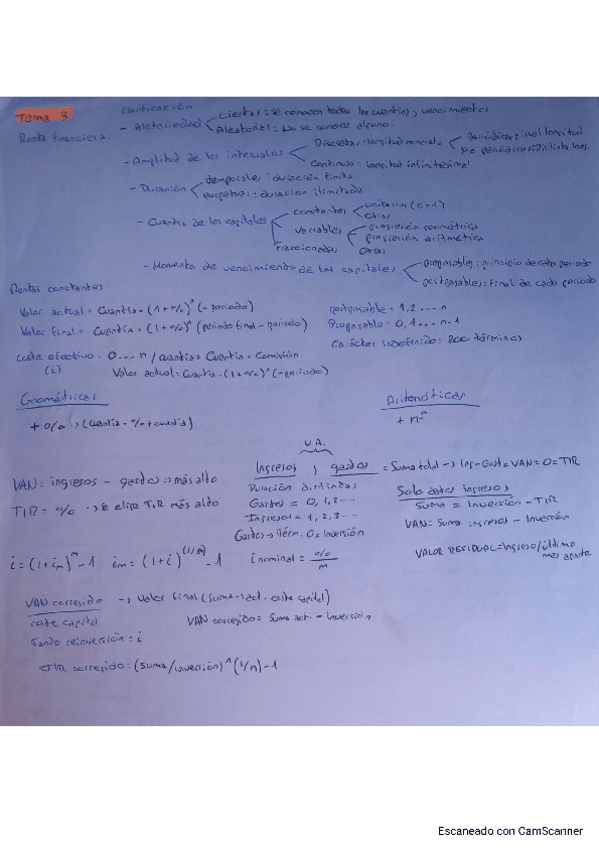 Tema 3
Clasificación
Renta financiera:
- Aletoriedad
Ciertas: se conocen todas las cuantías y vencimientos
Aleatorias: No se conoce alguno.
- Amplitud de los intervalos
Discretas: longitud concreta
Periódicas: igual longitud
No periódicas: Distinta long.
Continuas: longitud infinitesimal
- Duración
temporales: duración finita
perpetuas: duración ilimitada
- Cuantía de los capitales
constantes
unitarias (c=1)
Otras
Variables
progresión geométrica
progresión aritmética
Otras
Fraccionadas
- Momento de vencimiento de los capitales
prepagables: principio de cada periodo
postpagables: Final de cada periodo
Rentas constantes
Valor actual = Cuantía · (1+%)^(-periodo)
Valor final = Cuantía · (1+%)^(periodo final - periodo)
postpagable = 1,2 ... n
Prepagable = 0,1 ... n-1
Carácter indefinido: 200 términos
Coste efectivo: 0 ... n / cuantía = Cuantía - Comisión
(i)
Valor actual = Cuantía · (1+%)^(-periodo)
Geométricas
+ % -> (cuantía · % + cuantía)
Aritméticas
+ nº
V.A.
VAN: ingresos - gastos -> más alto
TIR = % -> Se elige TIR más alto
Ingresos y gastos = Suma total -> Ing - Gast = VAN = 0 = TIR
Duración distintas
Gastos = 0,1,2...
Ingresos = 1,2,3...
Gastos -> Térm. 0 = Inversión
Solo datos ingresos
Suma = Inversión - TIR
VAN = Suma ingresos - Inversión
VALOR RESIDUAL = Ingreso/último
i = (1+im)^m - 1
im = (1+i)^(1/m) - 1
i nominal = %/m
VAN corregido -> Valor final (suma -> act. coste capital)
coste capital
VAN corregido = Suma act. - Inversión
Tando reinversión = i
TIR corregido: (suma/inversión)^(1/n) - 1
Escaneado con CamScanner